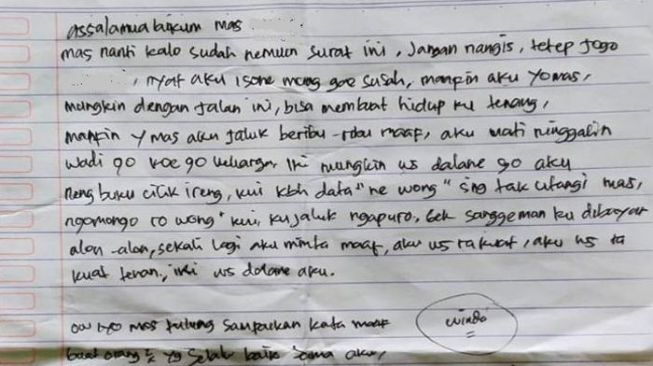 assalamualaikum mas
mas nanti kalo sudah nemuin surat ini, jangan nangis, tetep jogo
, nyat aku isone mung gae susah, maapin aku yo mas,
mungkin dengan jalan ini, bisa membuat hidup ku tenang,
maapin y mas aku jaluk beribu-ribu maaf, aku mati ninggalin
wadi go koe go keluarga. Ini mungkin ws dalane go aku
neng buku cilik ireng, kui kbh data" ne wong" sing tak utangi mas,
ngomongo ro wong" kui, ku jaluk ngapuro, sanggeman ku dibayar
alon-alon, sekali lagi aku minta maaf, aku ws ra kuat, aku ws ra
kuat tenan, ini ws dalane aku.
ow iyo mas tulung sampaikan kata maaf
buat orang2 yg selalu baik sama aku,
winda